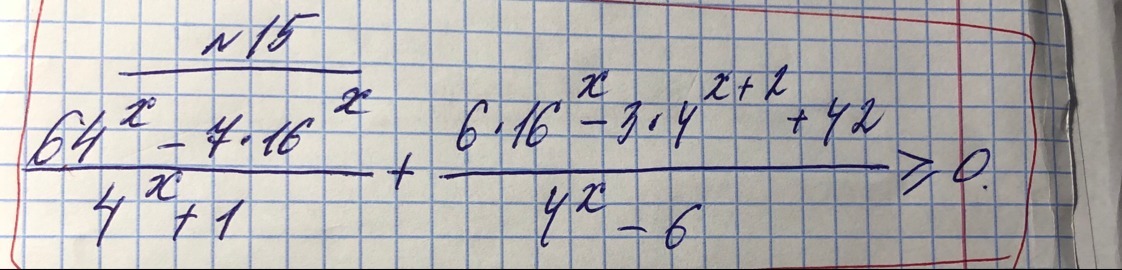 №15
(64^x - 7·16^x)/(4^x + 1) + (6·16^x - 3·4^(x+2) + 42)/(4^x - 6) ≥ 0.